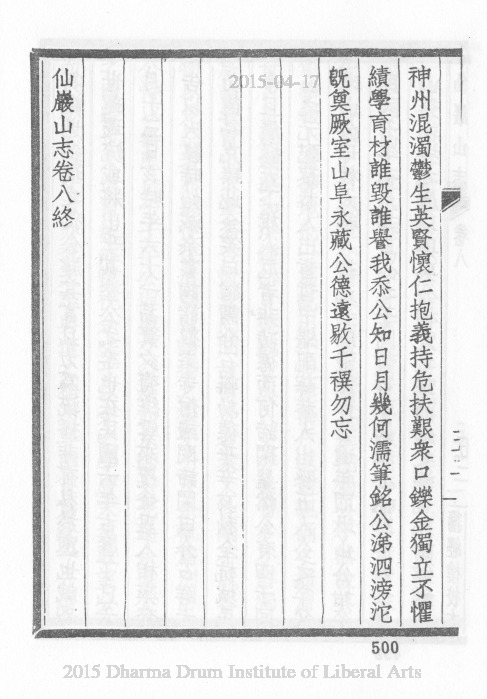 神州混濁鬱生英賢懷仁抱義持危扶艱衆口鑠金獨立不懼
績學育材誰毀誰譽我忝公知日月幾何濡筆銘公涕泗滂沱
旣奠厥室山阜永藏公德遠敭千禩勿忘
仙巖山志卷八終
2015-04-17
500
2015 Dharma Drum Institute of Liberal Arts